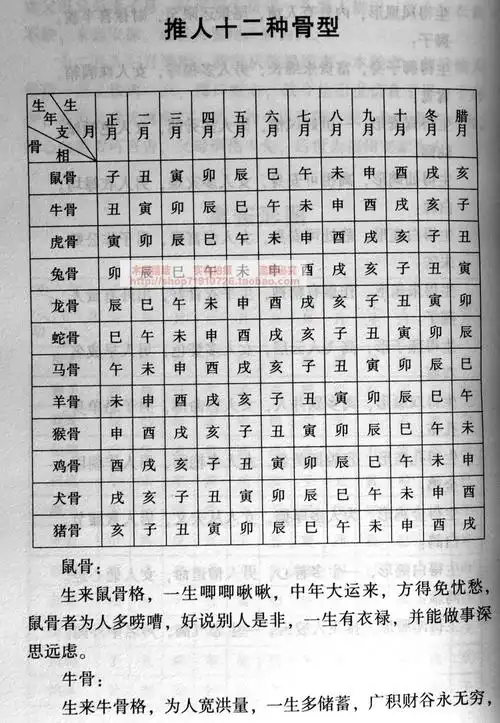 推人十二种骨型
生年支 生月 骨相 正月 二月 三月 四月 五月 六月 七月 八月 九月 十月 冬月 腊月
鼠骨 子 丑 寅 卯 辰 巳 午 未 申 酉 戌 亥
牛骨 丑 寅 卯 辰 巳 午 未 申 酉 戌 亥 子
虎骨 寅 卯 辰 巳 午 未 申 酉 戌 亥 子 丑
兔骨 卯 辰 巳 午 未 申 酉 戌 亥 子 丑 寅
http://shop71910726.taobao.com
龙骨 辰 巳 午 未 申 酉 戌 亥 子 丑 寅 卯
蛇骨 巳 午 未 申 酉 戌 亥 子 丑 寅 卯 辰
马骨 午 未 申 酉 戌 亥 子 丑 寅 卯 辰 巳
羊骨 未 申 酉 戌 亥 子 丑 寅 卯 辰 巳 午
猴骨 申 酉 戌 亥 子 丑 寅 卯 辰 巳 午 未
鸡骨 酉 戌 亥 子 丑 寅 卯 辰 巳 午 未 申
犬骨 戌 亥 子 丑 寅 卯 辰 巳 午 未 申 酉
猪骨 亥 子 丑 寅 卯 辰 巳 午 未 申 酉 戌
鼠骨：
生来鼠骨格，一生唧唧啾啾，中年大运来，方得免忧愁，
鼠骨者为人多唠嘈，好说别人是非，一生有衣禄，并能做事深
思远虑。
牛骨：
生来牛骨格，为人宽洪量，一生多储蓄，广积财谷永无穷，